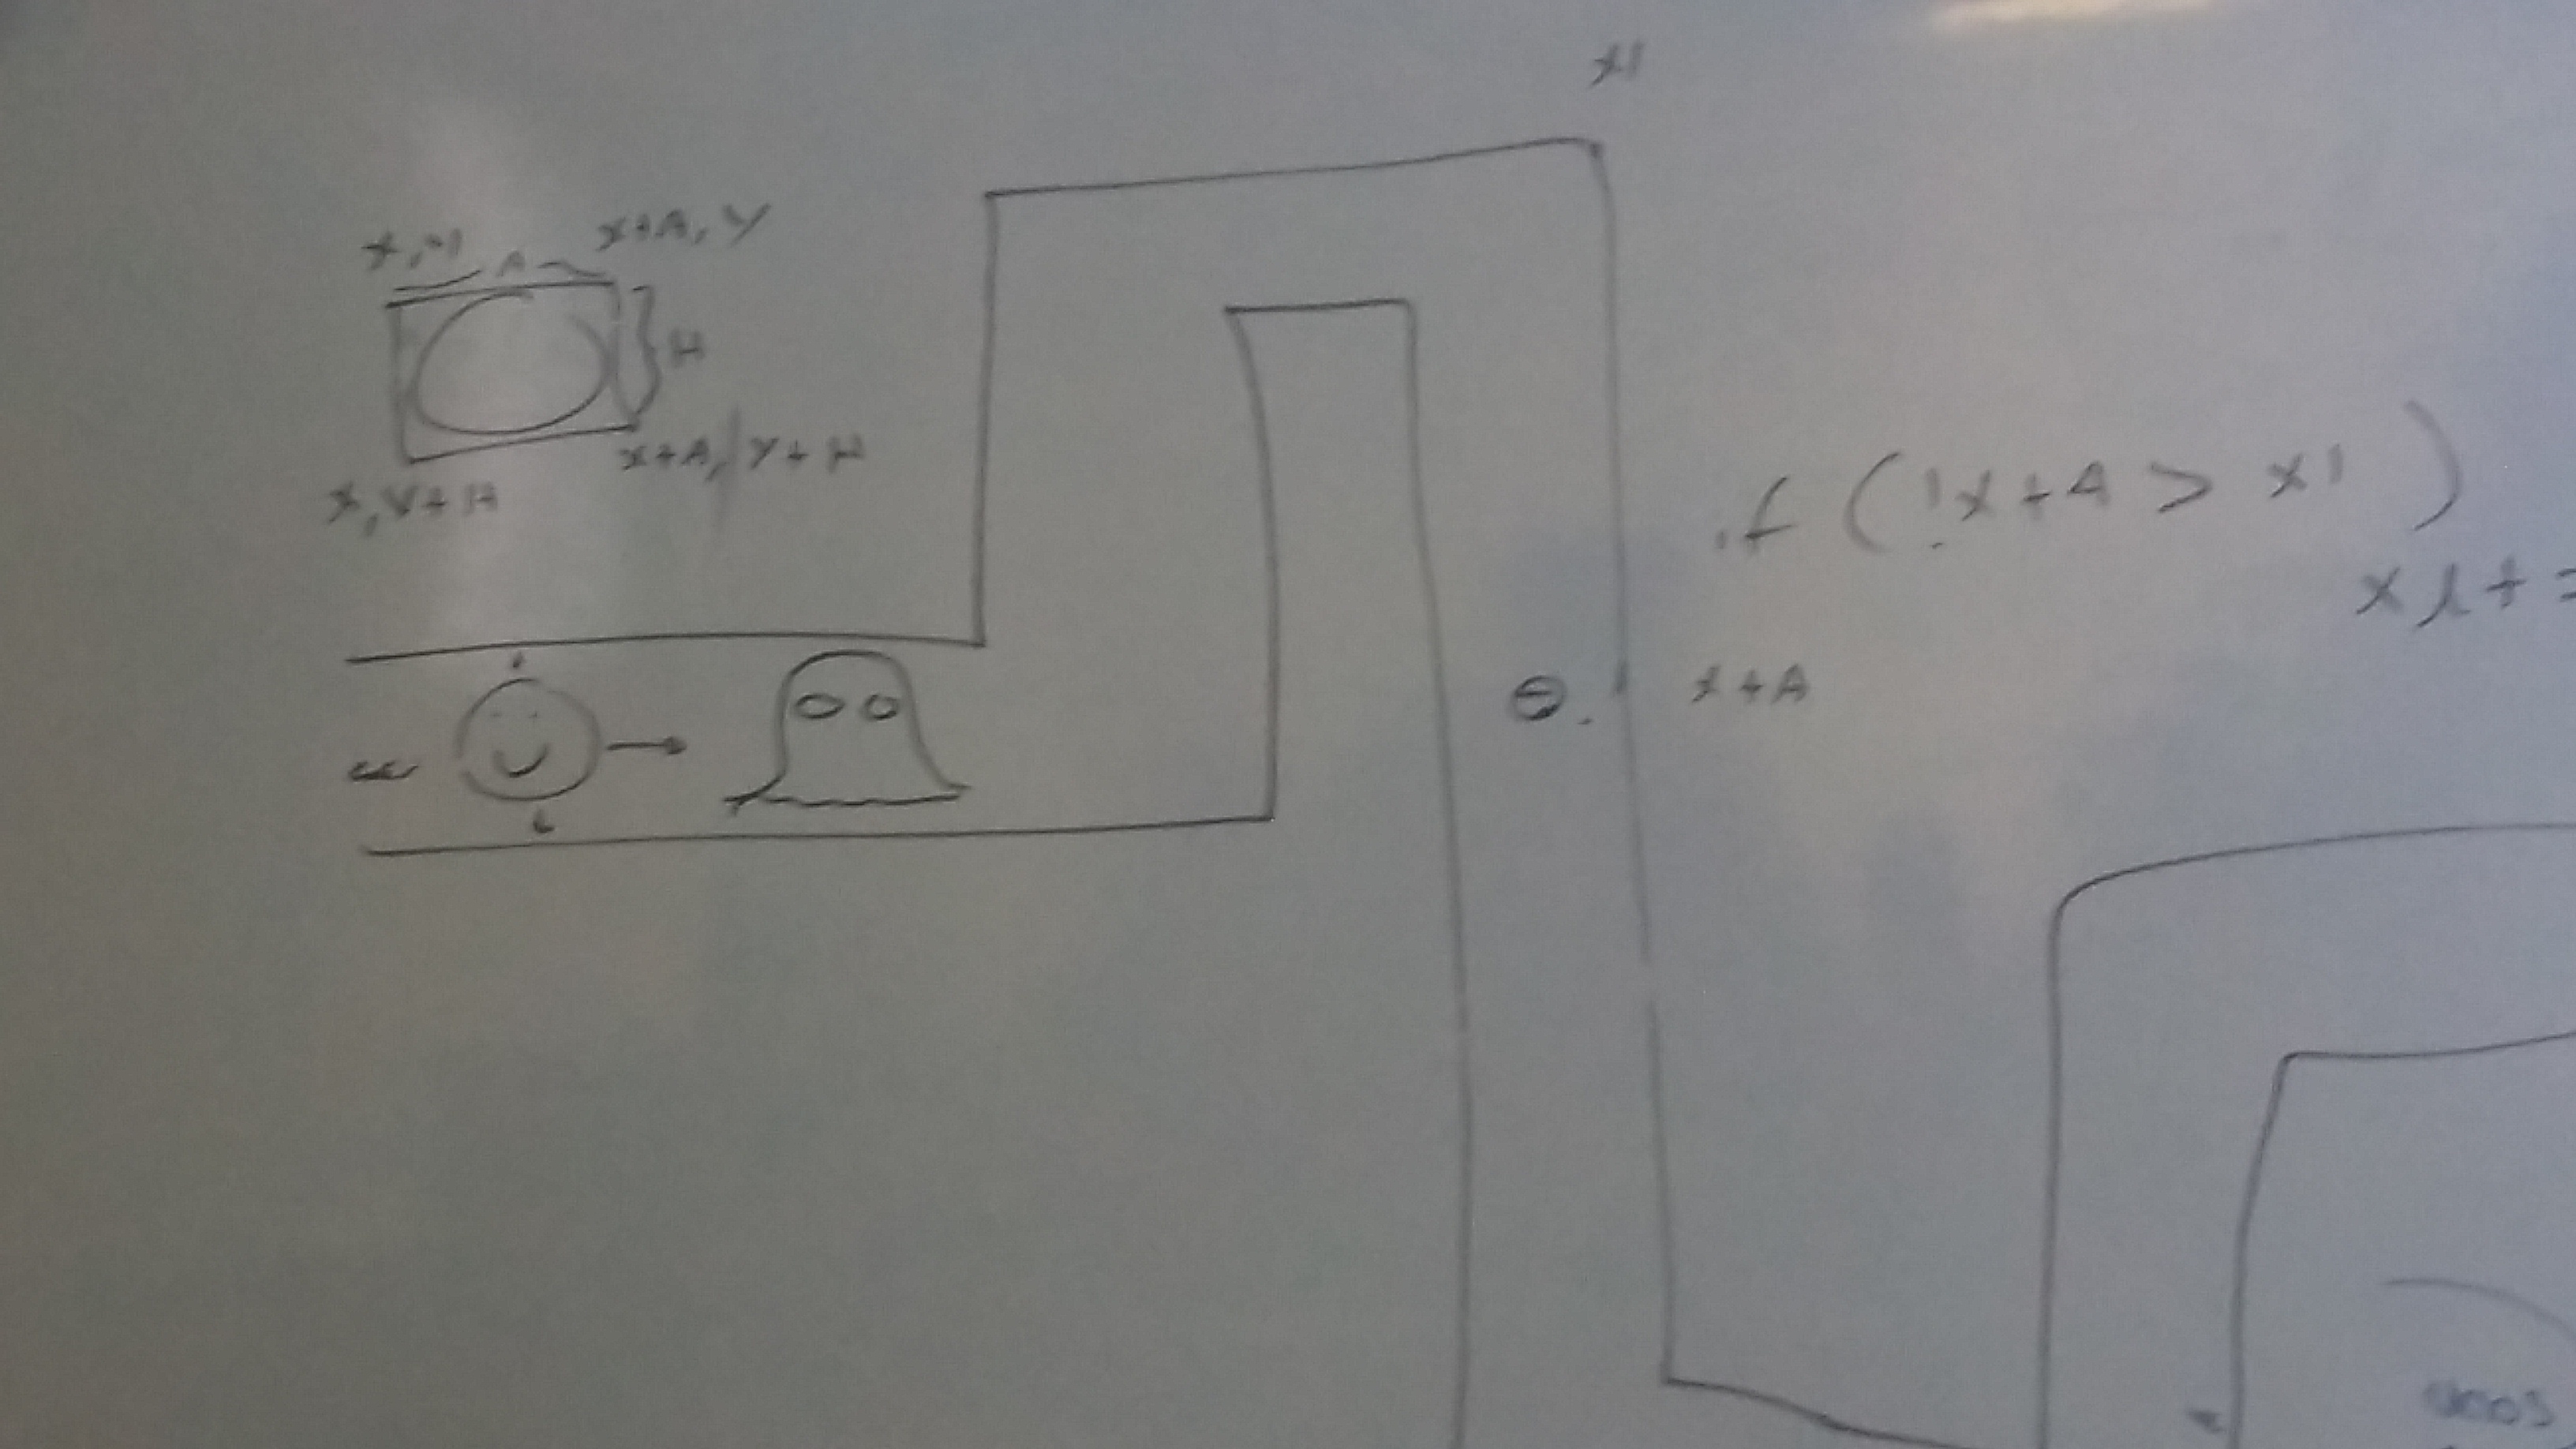 x1
x+A, y
A
H
x+A, y+H
x, y+H
if (!x+A > x1)
x+A